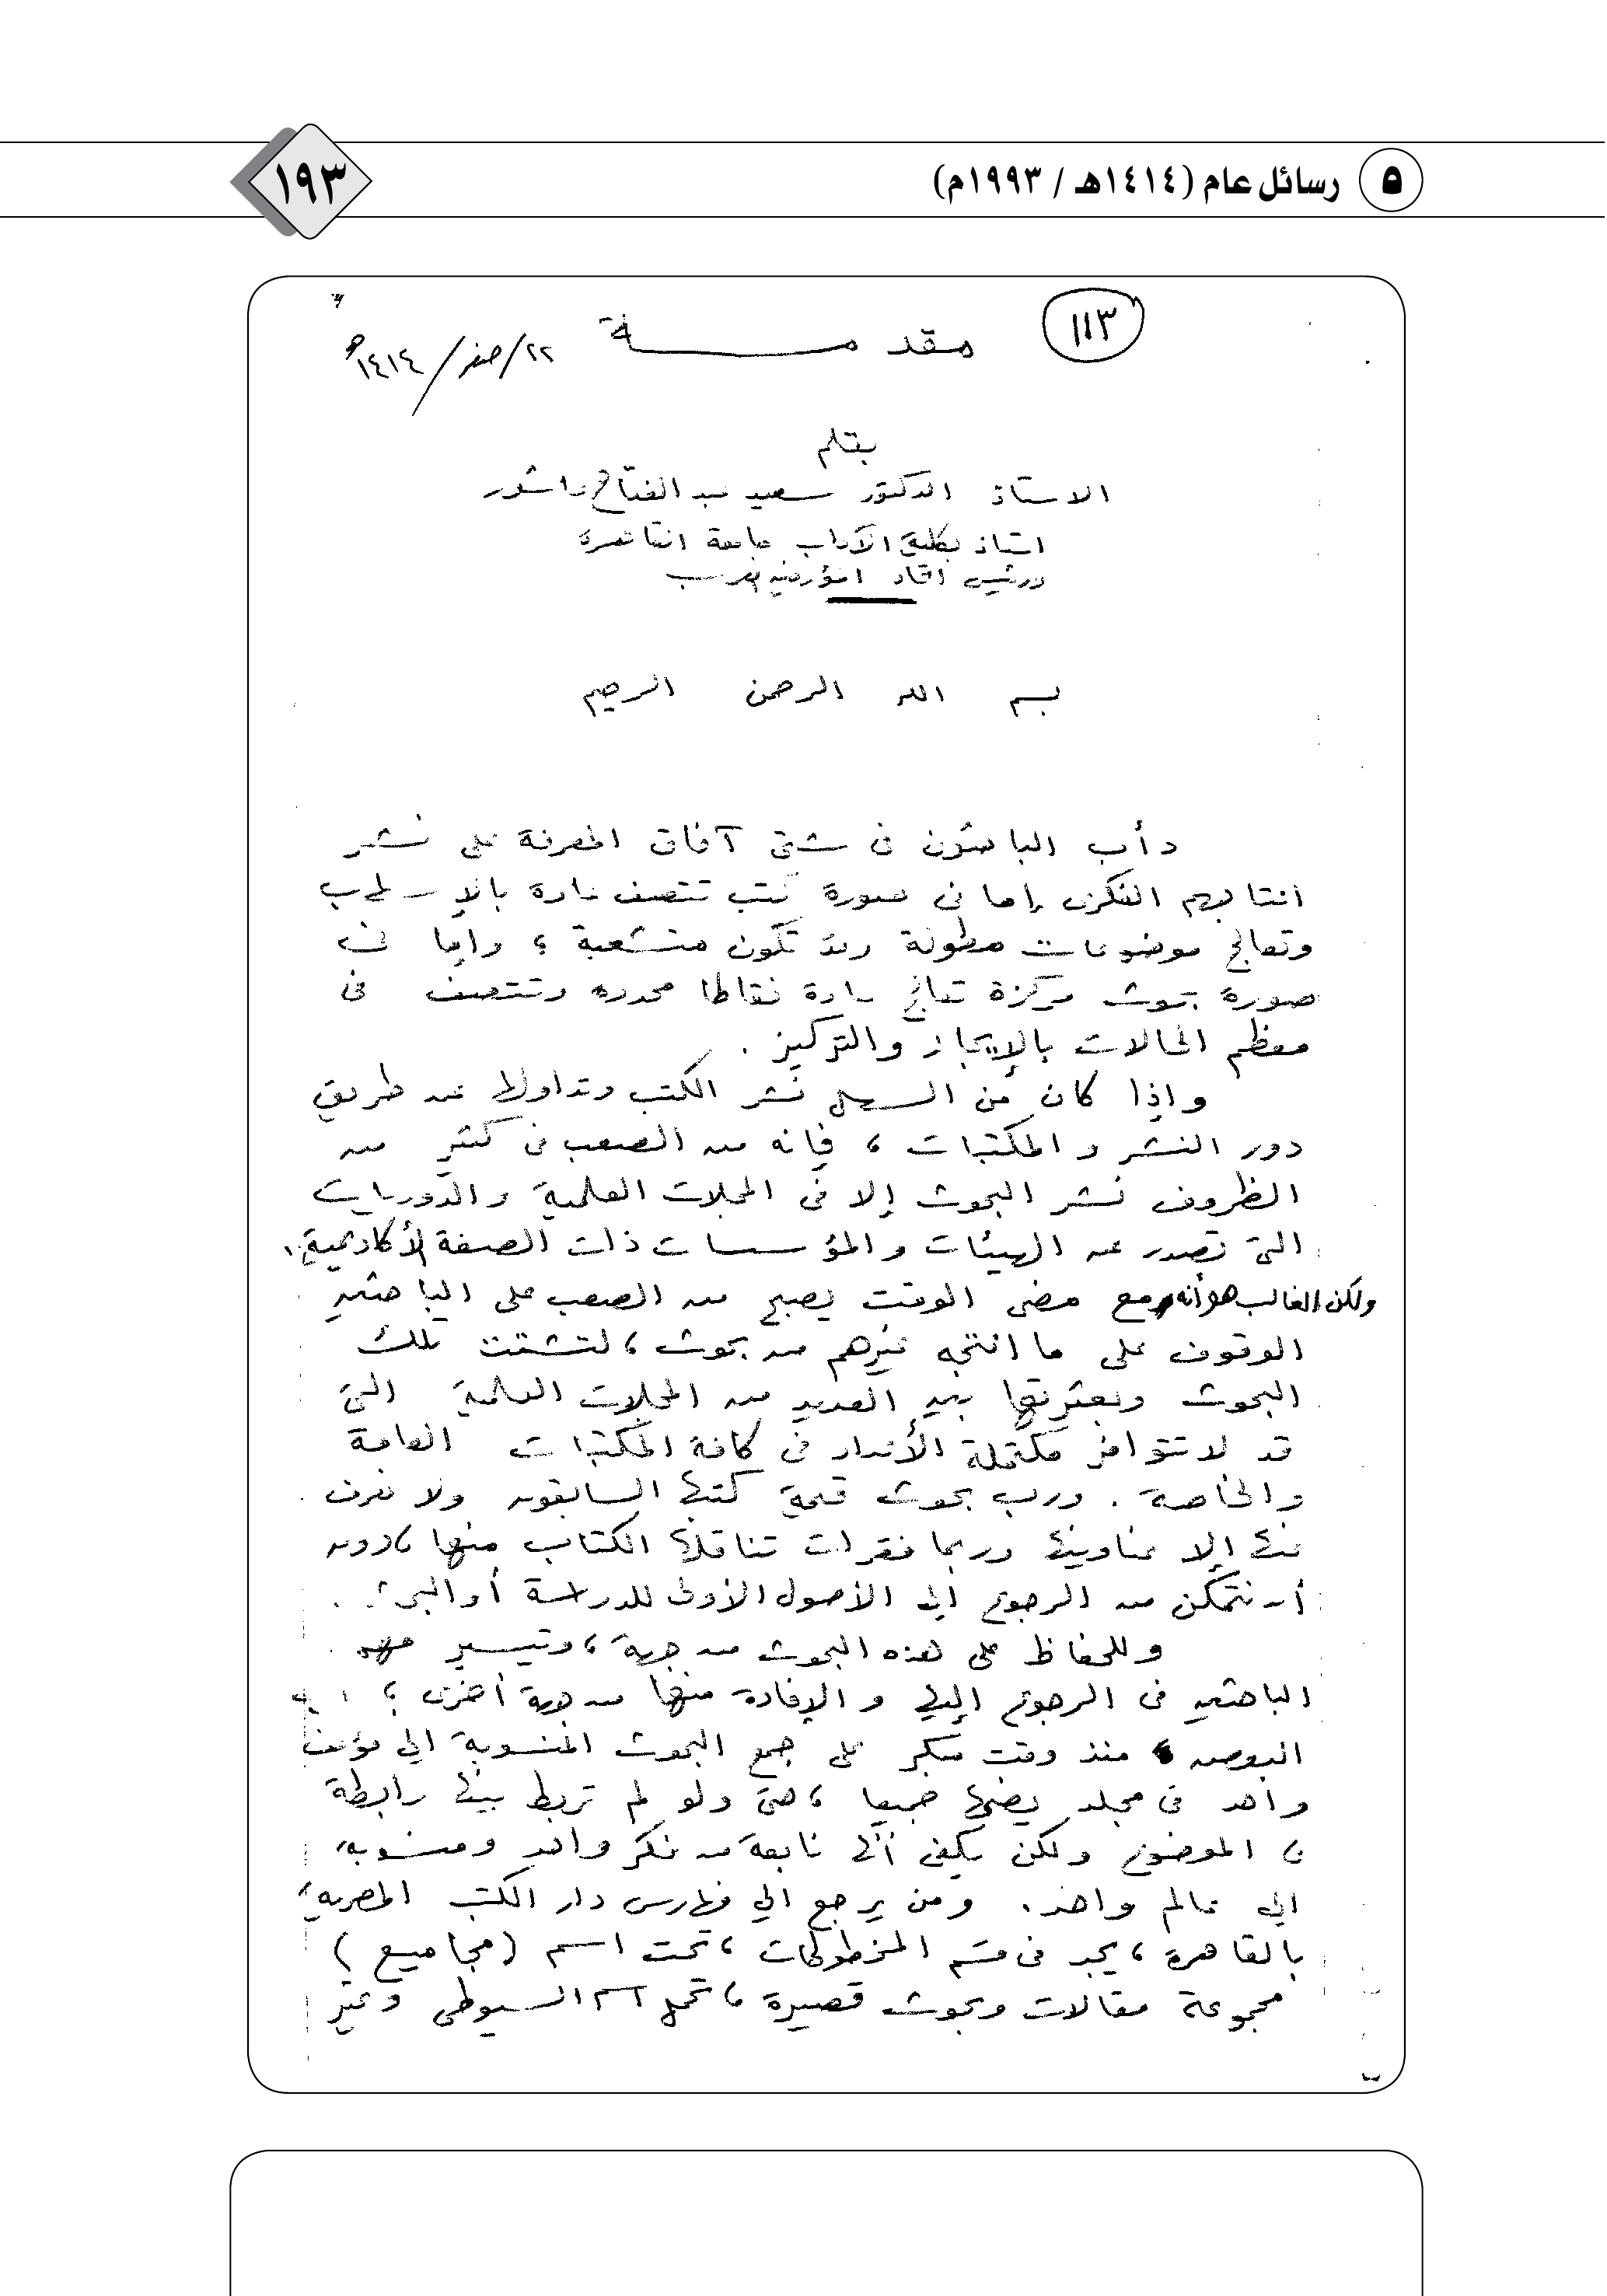 ٥ رسائل عام (١٤١٤هـ / ١٩٩٣م)
١٩٣
١١٣
مقدمـــــة
٢٢/صفر/١٤١٤هـ
بقلم
الاستاذ الدكتور سعيد عبد الفتاح عاشور
استاذ بكلية الآداب جامعة القاهرة
ورئيس اتحاد المؤرخين العرب
بسم الله الرحمن الرحيم
دأب الباحثون فى شتى آفاق المعرفة على نشر
انتاجهم الفكرى إما فى صورة كتب تتصف عادة بالإسهاب
وتعالج موضوعات مطولة وقد تكون متشعبة ؛ وإما فى
صورة بحوث مركزة تعالج عادة نقاطا محدده وتتصف فى
معظم الحالات بالإيجاز والتركيز .
وإذا كان من السهل نشر الكتب وتداولها عن طريق
دور النشر والمكتبات ، فإنه من الصعب فى كثير من
الظروف نشر البحوث إلا فى المجلات العلمية والدوريات
التى تصدر عن الهيئات والمؤسسات ذات الصفة الأكاديمية .
ولكن الغالب هو أنه مع مضى الوقت يصبح من الصعب على الباحثين
الوقوف على ما انتجه غيرهم من بحوث ، لتشتت تلك
البحوث وبعثرتها بين العديد من المجلات العلمية التى
قد لا تتوافر مكتملة الأعداد فى كافة المكتبات العامة
والخاصة . ورب بحوث قيمة كتبها السابقون ولا نعرف
عنها إلا عناوينها وربما فقرات تناقلها الكتاب منها ، دون
أن نتمكن من الرجوع الى الأصول الأولى للدراسة أو البحث .
وللحفاظ على هذه البحوث من جهة ، وتيسير مهمة
الباحثين فى الرجوع إليها والإفادة منها من جهة أخرى ؛
البعض منذ وقت مبكر على جمع البحوث المنسوبة الى مؤلف
واحد فى مجلد يضمها جميعا ، حتى ولو لم تربط بينها رابطة
الموضوع ولكن يكفى أنها نابعة من فكر واحد ومنسوبة
الى عالم واحد . ومن يرجع الى فهارس دار الكتب المصرية
بالقاهرة ، يجد فى قسم المخطوطات ، تحت اسم (مجاميع)
مجموعة مقالات وبحوث قصيرة ، تحمل اسم السيوطى وغير